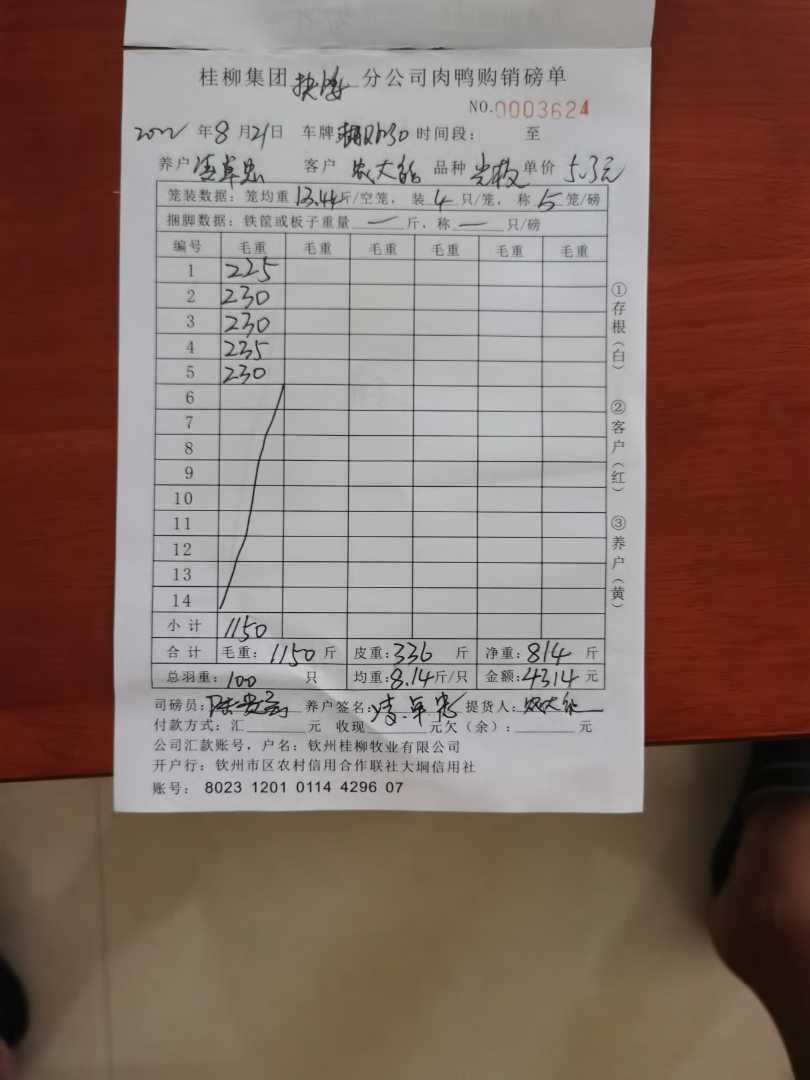 桂柳集团 分公司肉鸭购销磅单
NO.0003624
2022年8月21日 车牌 时间段： 至
养户 凌卓忠 客户 农大 品种 光板 单价 5.3元
笼装数据：笼均重13.44斤/空笼，装4只/笼，称5笼/磅
捆脚数据：铁筐或板子重量—斤，称—只/磅
编号 毛重 毛重 毛重 毛重 毛重 毛重
1 225
2 230
3 230
4 235
5 230
6
7
8
9
10
11
12
13
14
小计 1150
合计 毛重：1150斤 皮重：336斤 净重：814斤
总羽重：100只 均重：8.14斤/只 金额：4314元
司磅员： 养户签名：凌卓忠 提货人：农大
付款方式：汇 元 收现 元欠（余）： 元
公司汇款账号，户名：钦州桂柳牧业有限公司
开户行：钦州市区农村信用合作联社大垌信用社
账号：8023 1201 0114 4296 07
①存根（白）
②客户（红）
③养户（黄）